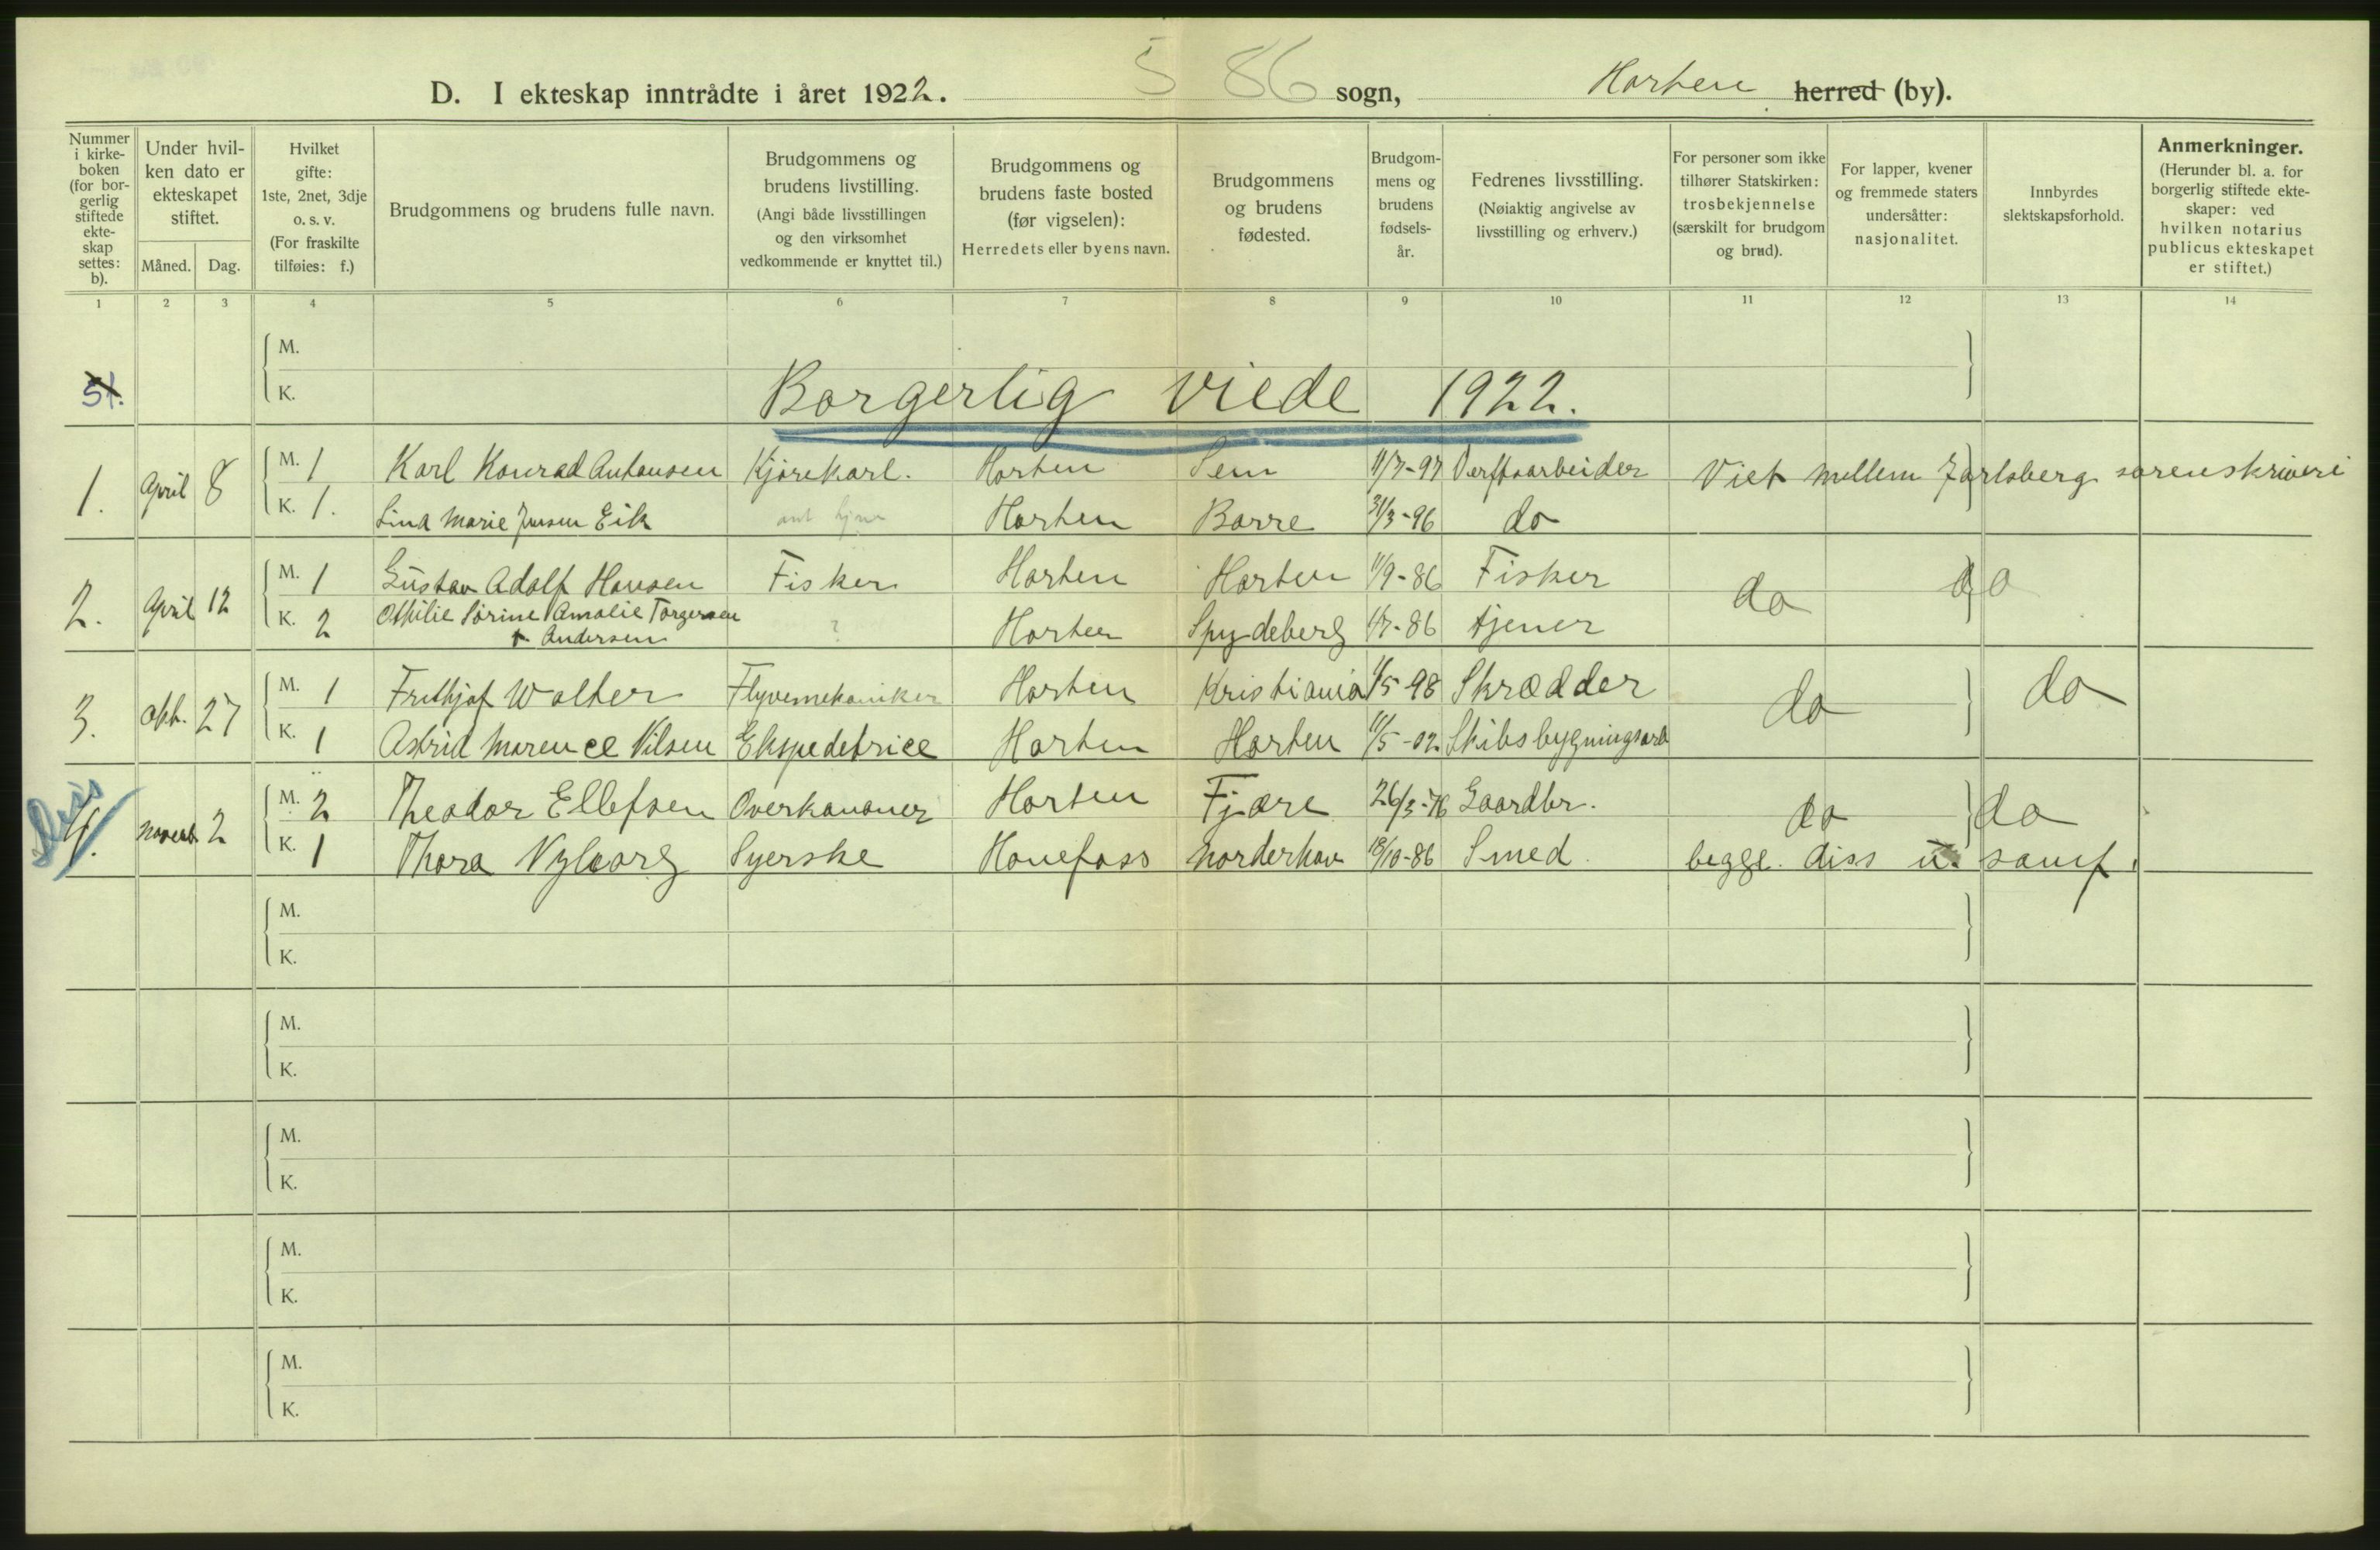 D. I ekteskap inntrådte i året 1922. 5 86 sogn, Horten herred (by).
Nummer i kirke- boken (for bor- gerlig stiftede ekte- skap settes: b).
Under hvil- ken dato er ekteskapet stiftet.
Måned. Dag.
Hvilket gifte: 1ste, 2net, 3dje o. s. v. (For fraskilte tilføies: f.)
Brudgommens og brudens fulle navn.
Brudgommens og brudens livstilling. (Angi både livsstillingen og den virksomhet vedkommende er knyttet til.)
Brudgommens og brudens faste bosted (før vigselen): Herredets eller byens navn.
Brudgommens og brudens fødested.
Brudgom- mens og brudens fødsels- år.
Fedrenes livsstilling. (Nøiaktig angivelse av livsstilling og erhverv.)
For personer som ikke tilhører Statskirken: trosbekjennelse (særskilt for brudgom og brud).
For lapper, kvener og fremmede staters undersåtter: nasjonalitet.
Innbyrdes slektskapsforhold.
Anmerkninger. (Herunder bl. a. for borgerlig stiftede ekte- skaper: ved hvilken notarius publicus ekteskapet er stiftet.)
1 2 3 4 5 6 7 8 9 10 11 12 13 14
M.
K.
Borgerlig viede 1922.
1. April 8 M. 1 Karl Konrad Antonsen Kjørekarl. Horten Sem 11/7-97 Verftsarbeider Viet mellem Jarlsberg sorenskriveri
K. 1. Lina Marie Jensen Eik Horten Borre 31/3-96 do
2. April 12 M. 1 Gustav Adolf Hansen Fisker Horten Horten 11/9-86 Fisker do do
K. 2 Othilie Sørine Amalie Torgersen
Andersen ? Horten Spydeberg 1/7-86 tjener
3. Okt. 27 M. 1 Frithjof Walter Flyvemekaniker Horten Kristiania 1/5-98 Skrædder do do
K. 1 Astrid Marence Nilsen Ekspedetrice Horten Horten 11/5-02 Skibsbygningsarb
Diss
4. Novemb. 2 M. 2 Theodor Ellefsen Overkanoner Horten Fjære 26/3-76 Gaardbr. do do
K. 1 Thora Nyborg Syerske Hønefoss Norderhov 18/10-86 Smed. begge diss u. samf.
M.
K.
M.
K.
M.
K.
M.
K.
M.
K.